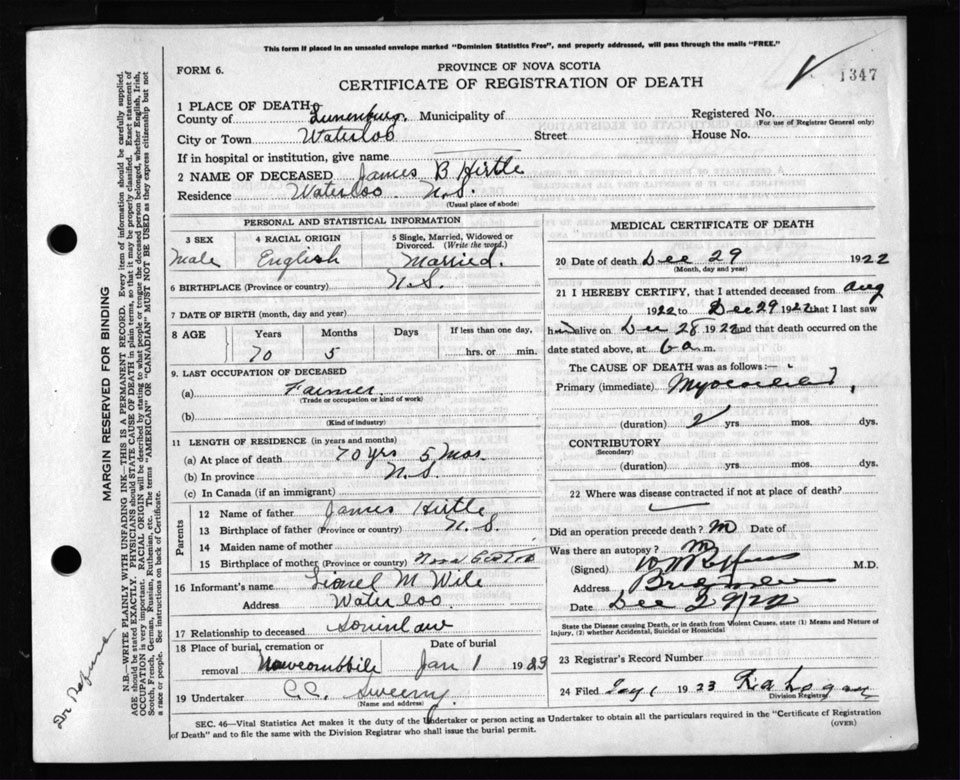 This form if placed in an unsealed envelope marked "Dominion Statistics Free", and properly addressed, will pass through the mails "FREE."
FORM 6.
PROVINCE OF NOVA SCOTIA
CERTIFICATE OF REGISTRATION OF DEATH
1347
1 PLACE OF DEATH
County of Lunenburg. Municipality of Registered No.
(For use of Registrar General only)
City or Town Waterloo Street House No.
If in hospital or institution, give name
2 NAME OF DECEASED James B Hirtle
Residence Waterloo N.S.
(Usual place of abode)
PERSONAL AND STATISTICAL INFORMATION
3 SEX Male
4 RACIAL ORIGIN English
5 Single, Married, Widowed or Divorced. (Write the word.) Married.
6 BIRTHPLACE (Province or country) N.S.
7 DATE OF BIRTH (month, day and year)
8 AGE Years Months Days If less than one day,
70 5 hrs. or min.
9. LAST OCCUPATION OF DECEASED
(a) Farmer
(Trade or occupation or kind of work)
(b)
(Kind of industry)
11 LENGTH OF RESIDENCE (in years and months)
(a) At place of death 70 yrs 5 Mos.
(b) In province N.S.
(c) In Canada (if an immigrant)
Parents
12 Name of father James Hirtle
13 Birthplace of father (Province or country) N.S.
14 Maiden name of mother
15 Birthplace of mother (Province or country) Nova Scotia
16 Informant's name Lionel M Wile
Address Waterloo.
17 Relationship to deceased Soninlaw
18 Place of burial, cremation or removal
Date of burial
Jan 1 1923
19 Undertaker C.C. Sweeny
(Name and address)
MEDICAL CERTIFICATE OF DEATH
20 Date of death Dec 29 1922
(Month, day and year)
21 I HEREBY CERTIFY, that I attended deceased from Aug
1922 to Dec 29 1922 that I last saw
him alive on Dec 28 1922 and that death occurred on
date stated above, at 6 a m.
The CAUSE OF DEATH was as follows:—
Primary (immediate)
(duration) 2 yrs. mos. dys.
CONTRIBUTORY
(Secondary)
(duration) yrs. mos. dys.
22 Where was disease contracted if not at place of death?
Did an operation precede death? Date of
Was there an autopsy?
(Signed) M.D.
Address
Date Dec 29/22
State the Disease causing Death, or in death from Violent Causes, state (1) Means and Nature of Injury, (2) whether Accidental, Suicidal or Homicidal
23 Registrar's Record Number
24 Filed 1923
Division Registrar
SEC. 46—Vital Statistics Act makes it the duty of the Undertaker or person acting as Undertaker to obtain all the particulars required in the "Certificate of Registration
of Death" and to file the same with the Division Registrar who shall issue the burial permit. (OVER)
MARGIN RESERVED FOR BINDING
N.B.—WRITE PLAINLY WITH UNFADING INK—THIS IS A PERMANENT RECORD. Every item of information should be carefully supplied.
AGE should be stated EXACTLY. PHYSICIANS should STATE CAUSE OF DEATH in plain terms, so that it may be properly classified. Exact statement of
OCCUPATION is very important. RACIAL ORIGIN will be described by stating to what people or tongue the deceased person belonged, whether English, Irish,
Scotch, French, German, Russian, Ruthenian, etc. The terms "AMERICAN" or "CANADIAN" MUST NOT BE USED as they express citizenship but not
a race or people. See instructions on back of Certificate.